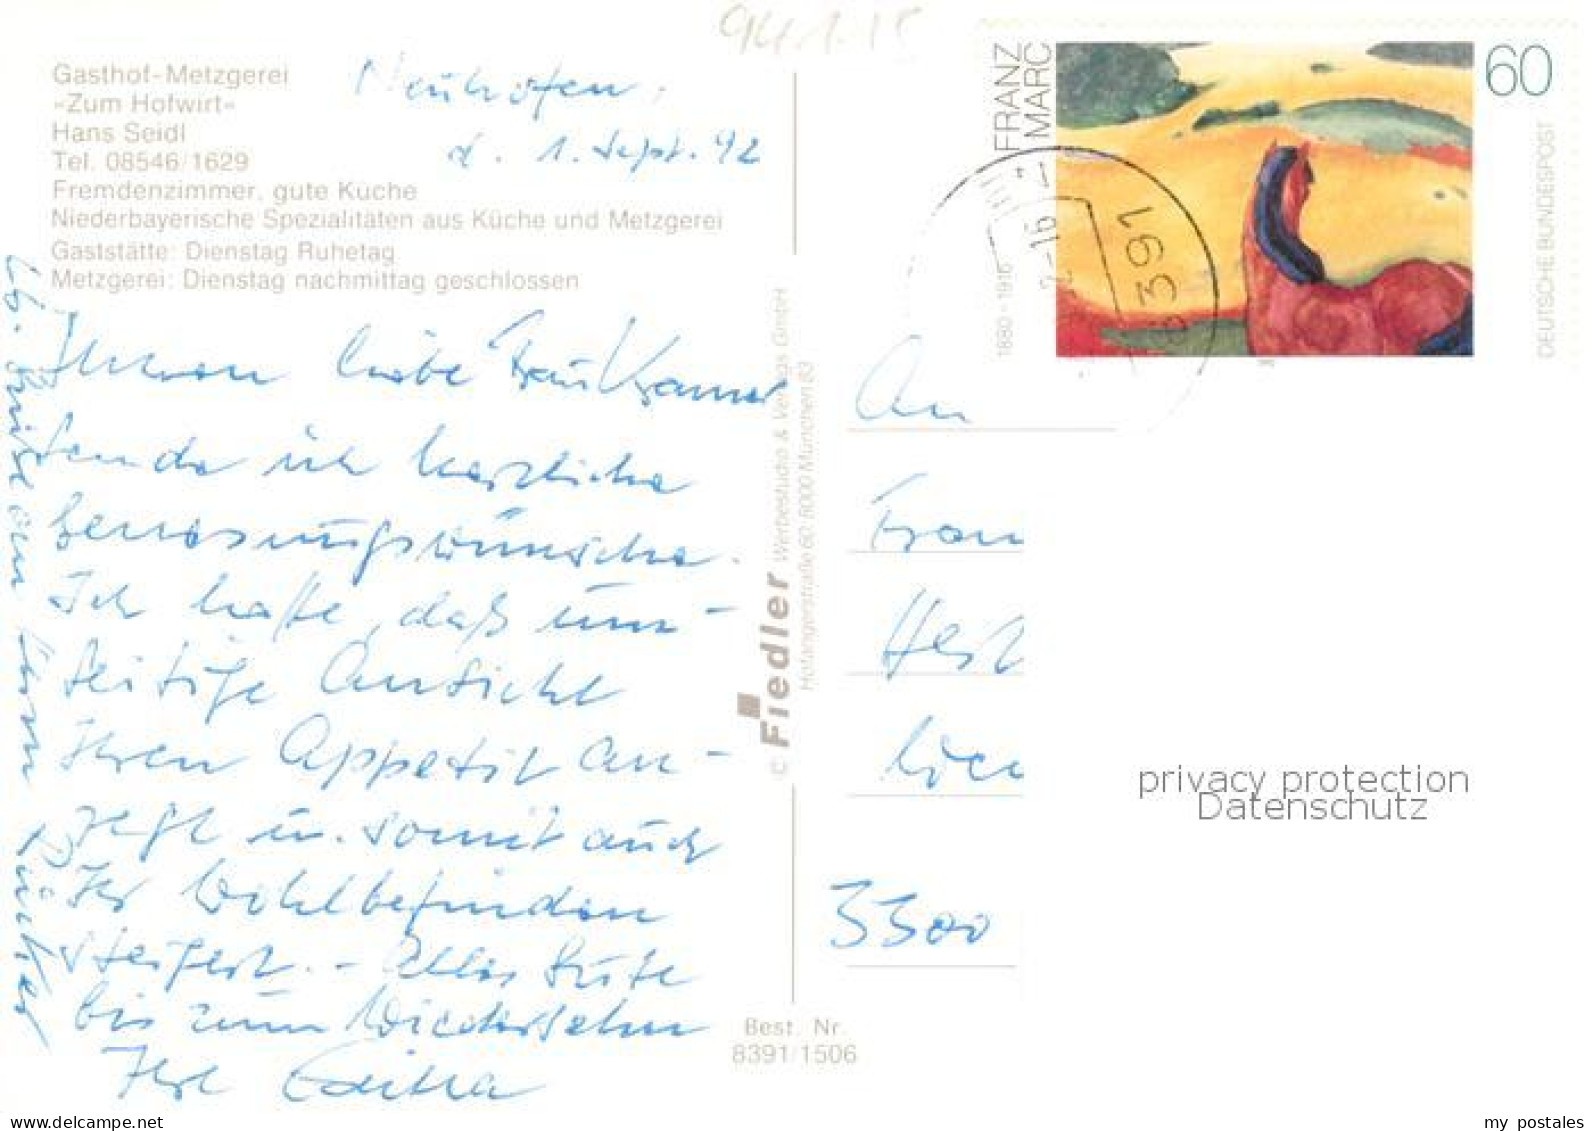 94 1.15
Gasthof-Metzgerei
»Zum Hofwirt«
Hans Seidl
Tel. 08546/1629
Fremdenzimmer, gute Küche
Niederbayerische Spezialitäten aus Küche und Metzgerei
Gaststätte: Dienstag Ruhetag
Metzgerei: Dienstag nachmittag geschlossen
Neuhofen,
d. 1. Sept. 92
Ihnen liebe Frau Kramer
sende ich herzliche
Genesungswünsche.
Ich hoffe, daß um-
seitige Ansicht
Ihren Appetit an-
regt u. somit auch
Ihr Wohlbefinden
steigert. - Alles Gute
bis zum Wiedersehn
Ihre Editha
Lb. Grüße von Ihrem
© Fiedler Werbestudio & Verlags GmbH
Hofangerstraße 60, 8000 München 83
Best. Nr.
8391/1506
FRANZ
MARC
1880-1916
60
DEUTSCHE BUNDESPOST
8391
-16
An
Frau
3300
privacy protection
Datenschutz
www.delcampe.net
my_postales